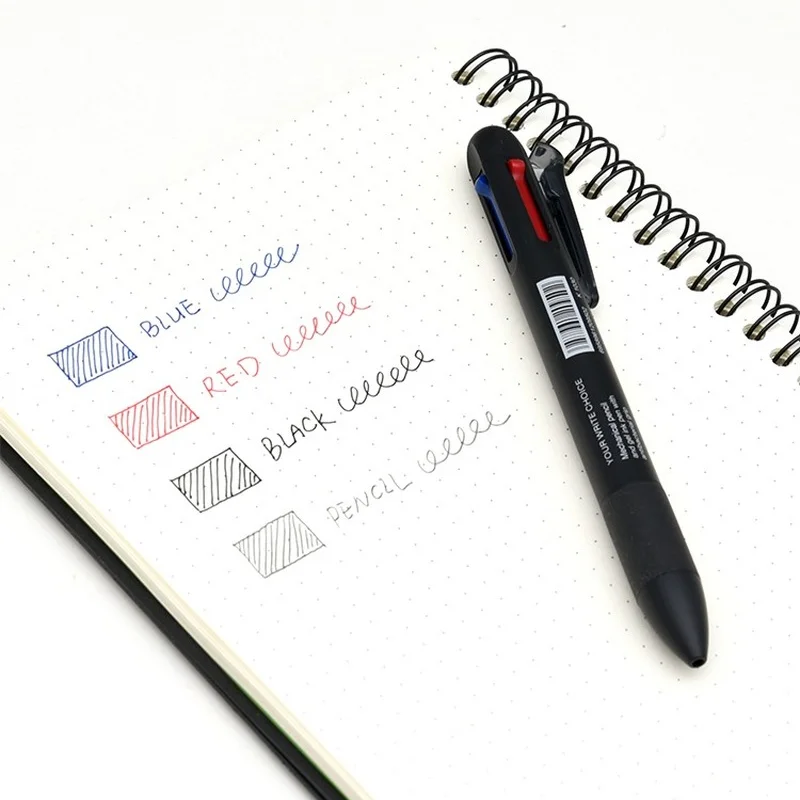 BLUE
RED
BLACK
PENCIL
YOUR WRITE CHOICE
Mechanical pencil
and gel ink pen with